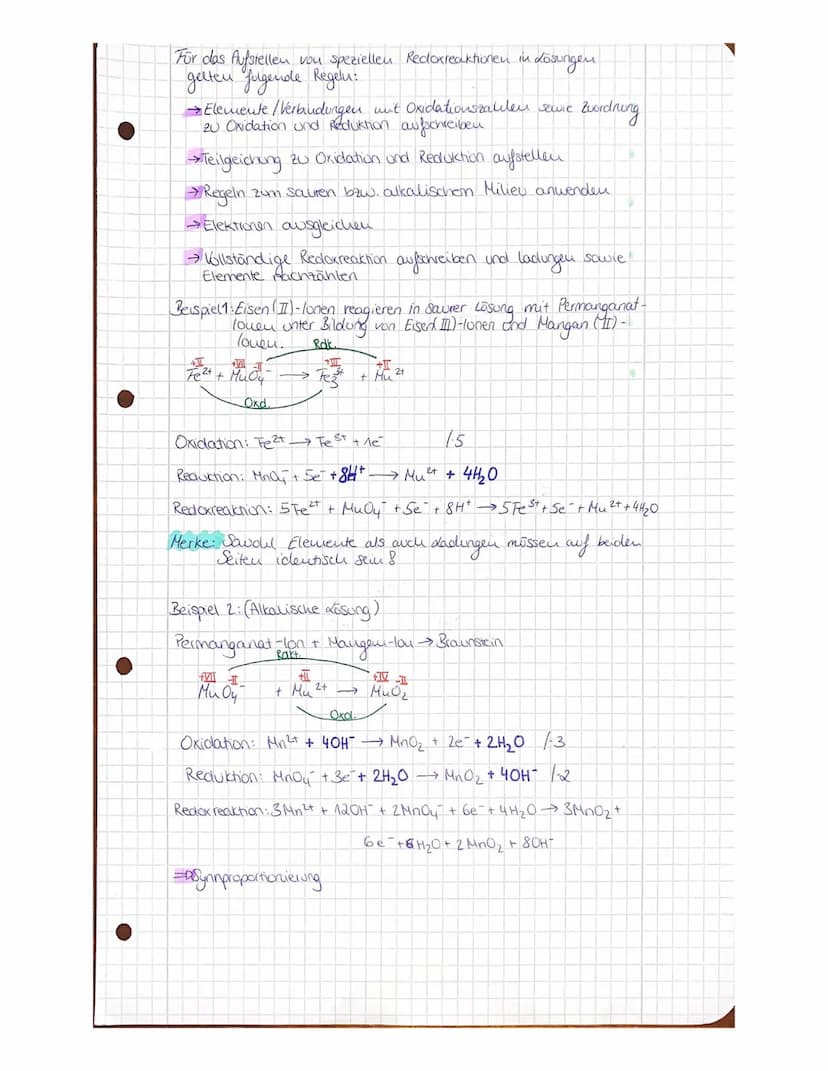 Für das Aufstellen von speziellen Redoxreaktionen in Lösungen
gelten folgende Regeln:
→ Elemente/Verbindungen mit Oxidationszahlen sowie Zuordnung
zu Oxidation und Reduktion aufschreiben
→ Teilgleichung zu Oxidation und Reduktion aufstellen
→ Regeln zum sauren bzw. alkalischem Milieu anwenden
→ Elektronen ausgleichen
→ Vollständige Redoxreaktion aufschreiben und Ladungen sowie
Elemente nachzählen
Beispiel 1: Eisen(II)-Ionen reagieren in saurer Lösung mit Permanganat-
Ionen unter Bildung von Eisen(III)-Ionen und Mangan(II)-
Ionen.
Rdk.
+II +VII -II +III +II
Fe²⁺ + MnO₄⁻ → Fe³⁺ + Mn²⁺
Oxd.
Oxidation: Fe²⁺ → Fe³⁺ + 1e⁻ /·5
Reduktion: MnO₄⁻ + 5e⁻ + 8H⁺ → Mn²⁺ + 4H₂O
Redoxreaktion: 5Fe²⁺ + MnO₄⁻ + 5e⁻ + 8H⁺ → 5Fe³⁺ + 5e⁻ + Mn²⁺ + 4H₂O
Merke: Sowohl Elemente als auch Ladungen müssen auf beiden
Seiten identisch sein!
Beispiel 2: (Alkalische Lösung)
Permanganat-Ion + Mangan-Ion → Braunstein
Rdkt.
+VII -II +II +IV -II
MnO₄⁻ + Mn²⁺ → MnO₂
Oxd.
Oxidation: Mn²⁺ + 4OH⁻ → MnO₂ + 2e⁻ + 2H₂O /·3
Reduktion: MnO₄⁻ + 3e⁻ + 2H₂O → MnO₂ + 4OH⁻ /·2
Redoxreaktion: 3Mn²⁺ + 12OH⁻ + 2MnO₄⁻ + 6e⁻ + 4H₂O → 3MnO₂ +
6e⁻ + 6H₂O + 2MnO₂ + 8OH⁻
⇒ Synproportionierung